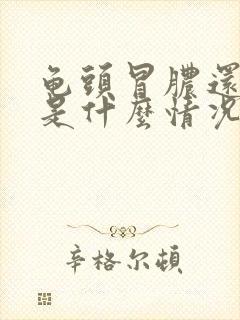 龟頭冒膿還
是什麼情况
辛格尔頓